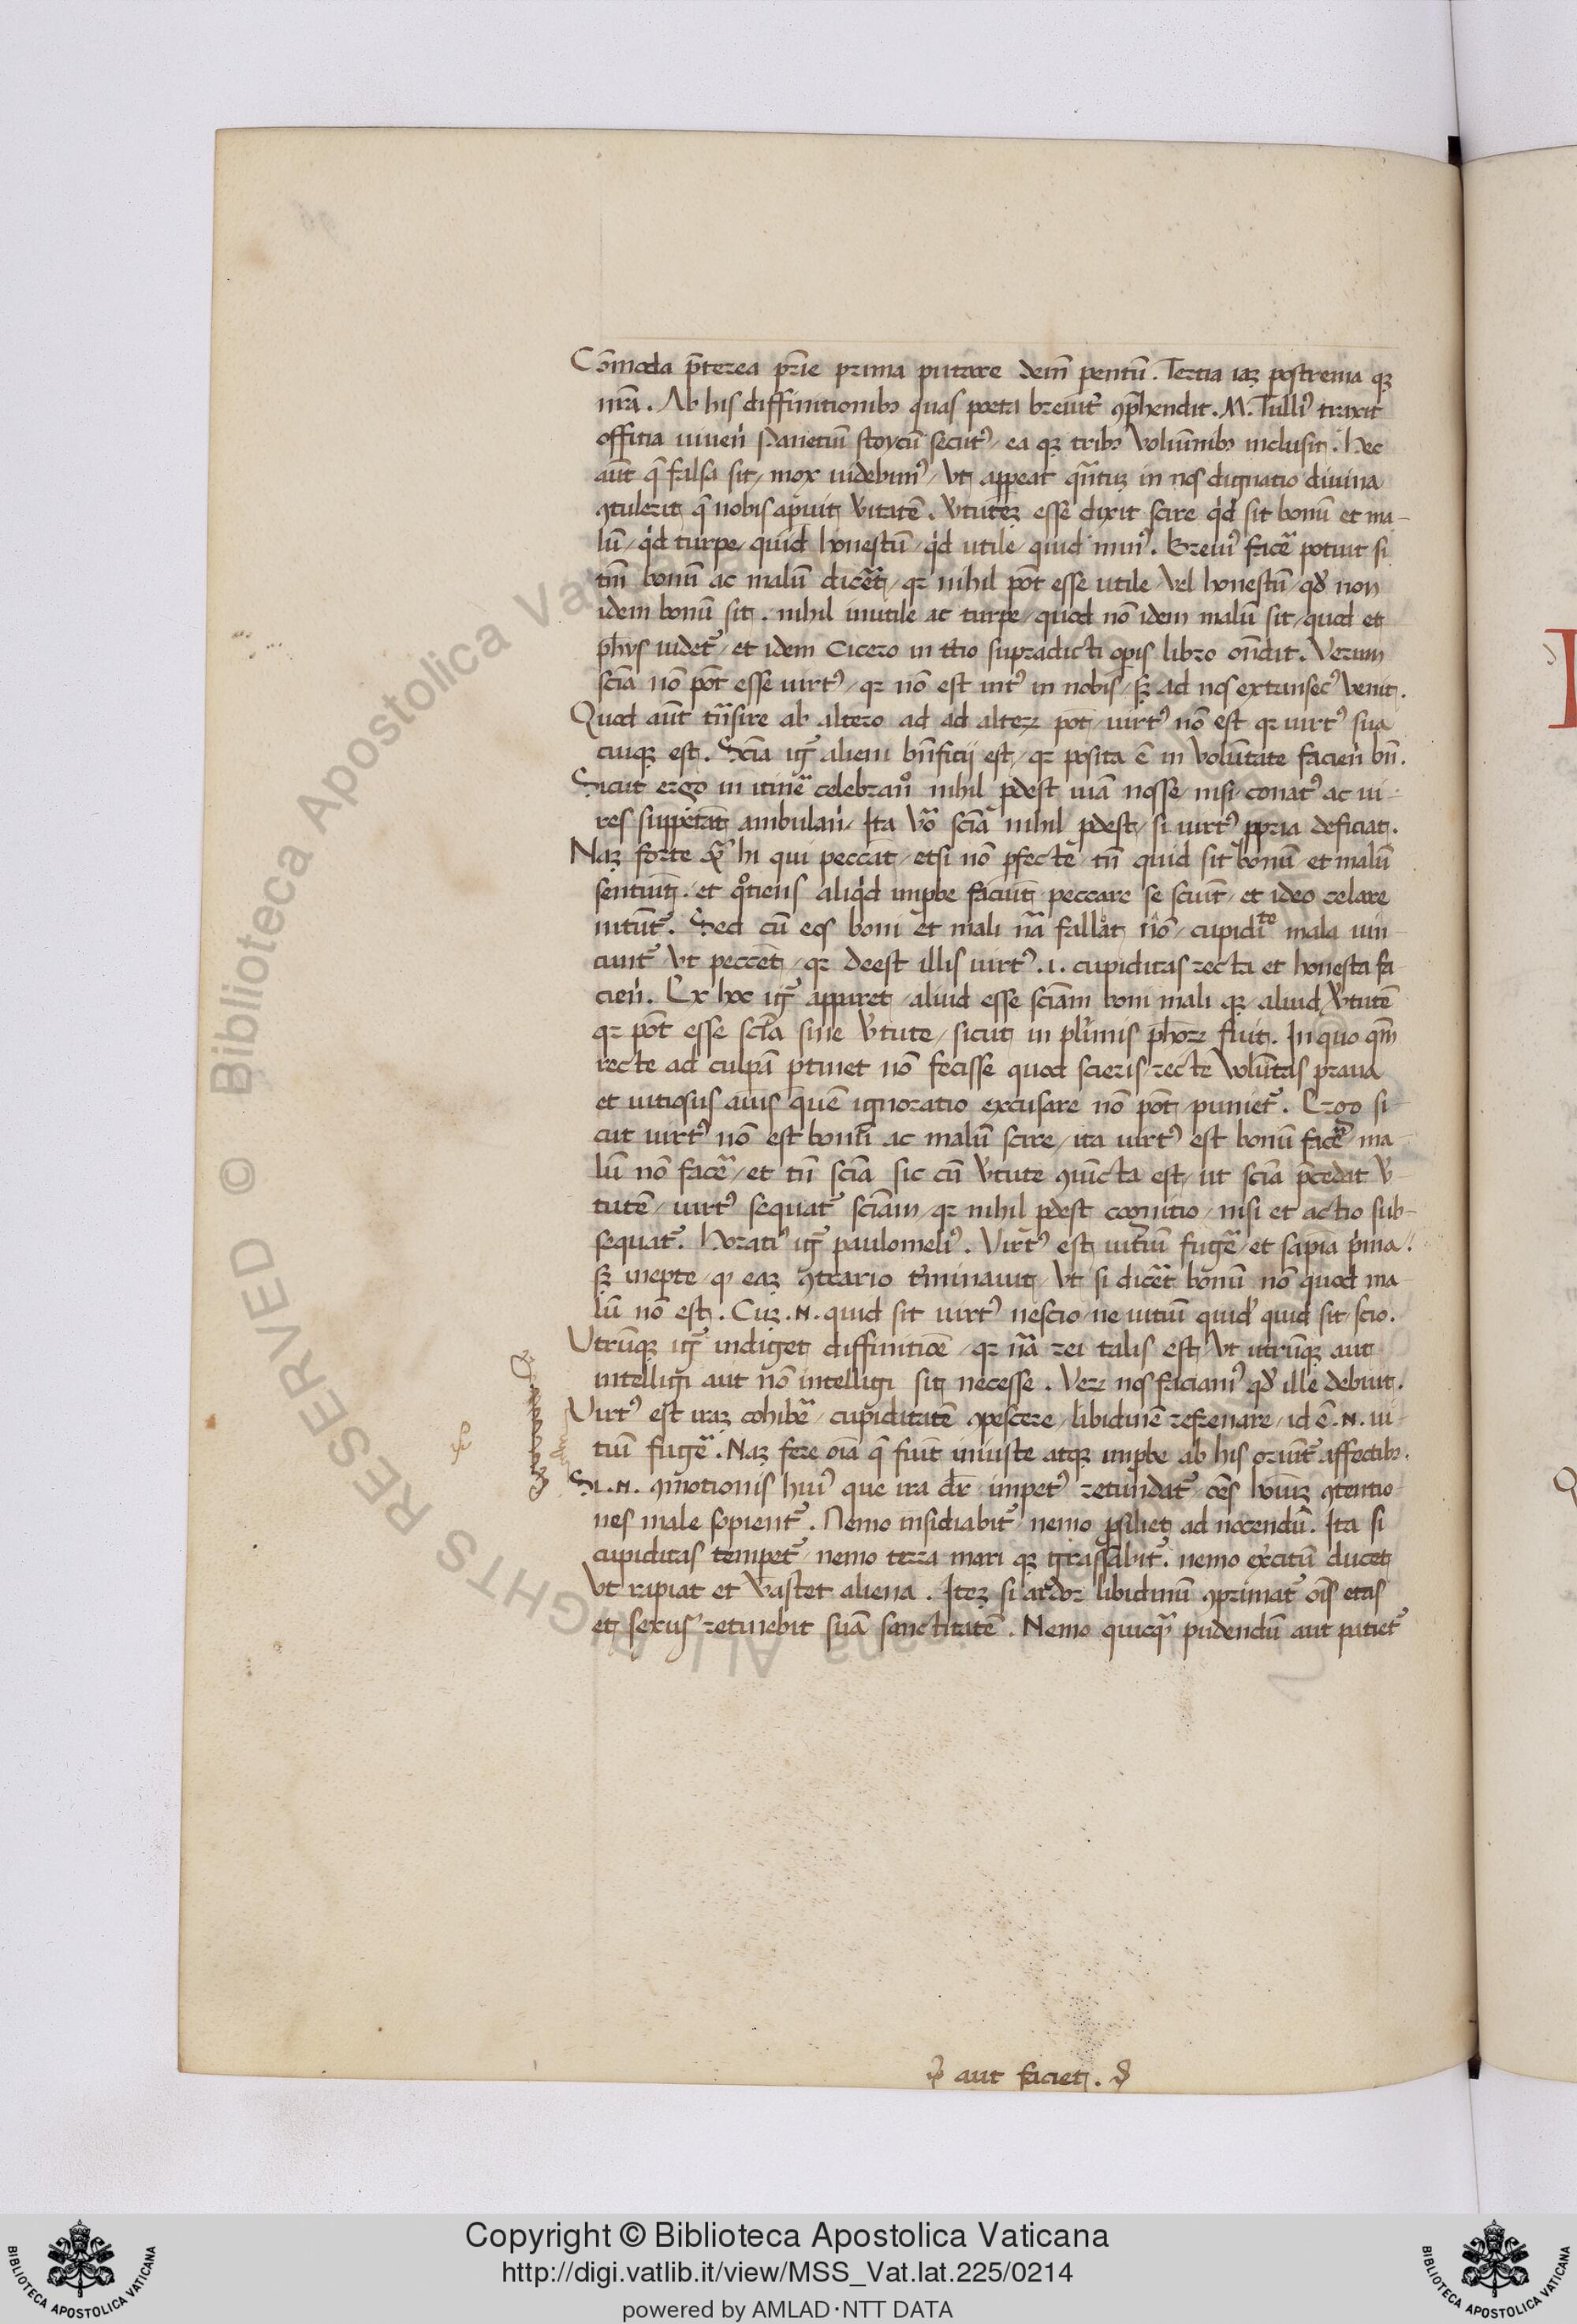 Cōmoda p̄terea pr̄ie prima putare dein̄ pentū. Tertia iaꝫ postrema qꝫ
nr̄a. Ab his diffinitionibꝰ quas poeta breuit᷑ ꝯp̄hendit. M. Tulliꝰ traxit
offitia viuen̄ Panetiū stoycū secutꝰ / ea qꝫ tribꝰ voluminibꝰ inclusit. Hec
aut̄ q̄ falsa sit / mox videbimꝰ / vt appeat qn̄tuꝫ in nos dignatio diuina
ꝯtulerit q̄ nobis apuit v̄itatē. v̄tuteꝫ esse dixit scire qͥd sit bonū et ma-
lū / qͥd turpe / quid honestū / qͥd utile / quid minꝰ. Breuiꝰ facē potuit si
tm̄ bonū ac malū dicēt / qꝛ nihil pōt esse utile / vel honestū / qd̓ non
idem bonū sit. nihil inutile ac turpe / quod nō idem malū sit / quod et
ph̄ys videt᷑ / et idem Cicero in tt̄io supradicti opis libro on̄dit. Verum
scīa nō pōt esse virtꝰ / qꝛ nō est intꝰ in nobis / sꝫ ad nos extrinsecꝰ venit.
Quod aut̄ tn̄sire ab altero ad ad alterꝝ pōt / virtꝰ nō est qꝛ virtꝰ sua
cuiqꝫ est. Scīa igr̄ alieni bn̄ficij est / qꝛ posita ē in volūtate facien̄ bn̄.
Sicut ergo in itinē celebran̄o nihil ꝓdest viā nosse / nisi conatꝰ ac vi-
res suppetāt ambulan̄ / Ita v̄o scīa nihil ꝓdest / si virtꝰ ꝓpria deficiat.
Naꝫ forte qͣꝫ hi qui peccāt / etsi nō ꝑfecte tn̄ quid sit bonū et malū
sentiūt / et qͦtiens aliqͥd impbe faciūt peccare se sciūt / et ideo celare
nitūt᷑. Sed cū eos boni et mali nā fallat nō / cupidite mala vin-
cunt᷑ vt peccēt / qꝛ deest illis virtꝰ .i. cupiditas recta et honesta fa-
cien̄. Ex hoc igr̄ apparet / aliud esse scīam boni mali qꝫ / aliud v̄tutē
qꝛ pōt esse scīa sine v̄tute / sicut in pl̄imis ph̄oꝝ fuit. In quo qm̄
recte ad culpā ꝑtinet nō fecisse quod scieris recte volūtas praua
et vitiosus aīus quē ignoratio excusare nō pōt puniet᷑. Ergo si-
cut virtꝰ nō est bonū ac malū scire / ita virtꝰ est bonū facē / ma-
lū nō facē / et tn̄ scīa sic cū v̄tute ꝯiūcta est / ut scīa p̄cedat v̄-
tutē / virtꝰ sequat᷑ scīam / qꝛ nihil ꝓdest cognitio / nisi et actio sub-
sequat᷑. Horatiꝰ igr̄ paulomeliꝰ. Virtꝰ est vitiū fugē / et sapīa p̄ma.
sꝫ inepte / qꝙ eaꝫ ꝯtrario t̄minauit / vt si dicēt bonū nō quod ma-
lū nō est. Cuꝫ .N. quid sit virtꝰ nescio / ne vitiū quid̓ quid sit scio.
Utrūqꝫ igr̄ indiget diffinitiōe / qꝛ nā rei talis est / vt utrūqꝫ aut
intelligi aut nō intelligi sit necesse. Veꝝ nos faciamꝰ qd̓ ille debuit.
Virtꝰ est iraꝫ cohibē / cupiditatē ꝯpescere / libidinē refrenare / id ē .N. vi-
tiū fugē. Naꝫ fere oīa q̄ fiūt iniuste atqꝫ impbe ab his oriūt᷑ affectibꝰ.
Si .N. ꝯmotionis huiꝰ que ira dr̄ impetꝰ retundat᷑ / oēs hoīuꝫ ꝯtentio-
nes male sopient᷑. Nemo insidiabit᷑ nemo ꝓsiliet ad nocendū. Ita si
cupiditas tempet᷑ / nemo terra mari qꝫ grassabit᷑. nemo exc̄itū ducet
vt rapiat et vastet aliena. Iteꝫ si ardor libidinū ꝯprimat᷑ oīs etas
et sexus retinebit suā sanctitatē. Nemo quicqͣꝫ pudendū aut patiet᷑
aut faciet.
Copyright © Biblioteca Apostolica Vaticana
http://digi.vatlib.it/view/MSS_Vat.lat.225/0214
powered by AMLAD·NTT DATA
BIBLIOTECA APOSTOLICA VATICANA
BIBLIOTECA APOSTOLICA VATICANA
© Biblioteca Apostolica Vaticana ALL RIGHTS RESERVED